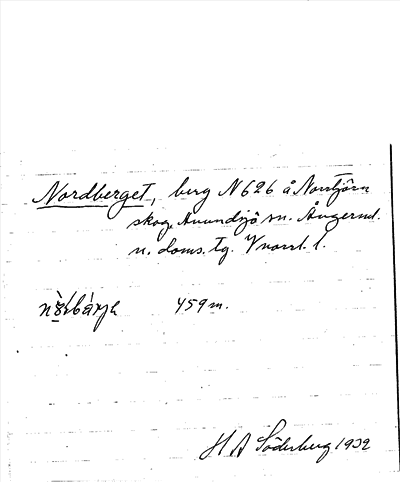 Nordberget, berg N 626 å Norrtjärn
skog, Avundsjö sn. Ångerml.
n. doms. tg. Vnorrl. l.
459 m.
H A Söderberg 1932